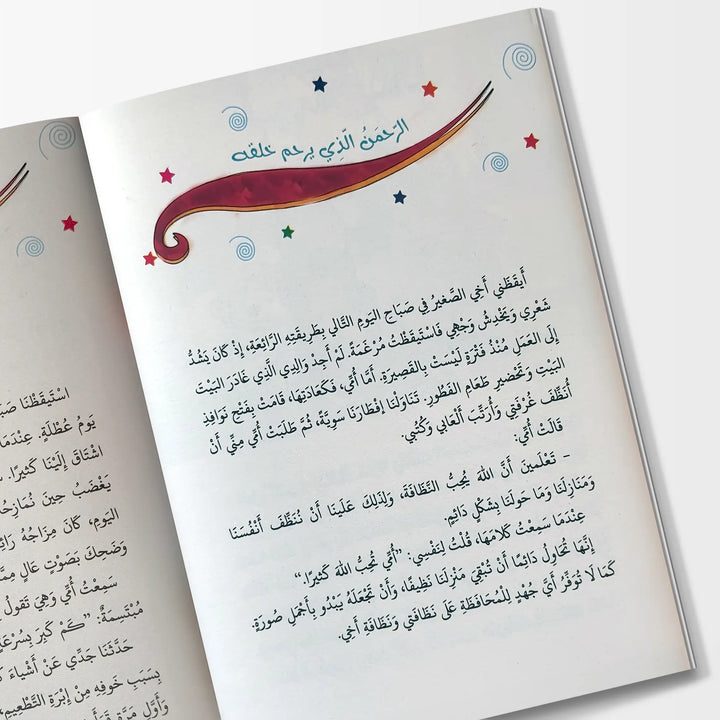 الرَّحمَنُ الَّذِي يرحم خلقه
أَيقَظَني أَخِي الصَّغيرُ فِي صَبَاحِ اليَومِ التَّالي بِطَريقَتِهِ الرَّائِعَةِ، إِذْ كَانَ يَشُدُّ
شَعْرِي وَيَخْدِشُ وَجْهِي فَاسْتَيقَظْتُ مُرْغَمَةً. لَمْ أَجِدْ وَالِدِي الَّذِي غَادَرَ البَيْتَ
إِلَى العَمَلِ مُنْذُ فَتْرَةٍ لَيْسَتْ بِالقَصِيرَةِ. أَمَّا أُمِّي، فَكَعَادَتِهَا، قَامَتْ بِفَتْحِ نَوَافِذِ
البَيْتِ وَتَحْضِيرِ طَعَامِ الفَطُورِ. تَنَاوَلْنَا إِفْطَارَنَا سَوِيَّةً، ثُمَّ طَلَبَتْ أُمِّي مِنِّي أَنْ
أُنَظِّفَ غُرْفَتِي وَأُرَتِّبَ أَلْعَابِي وَكُتُبِي.
قَالَتْ أُمِّي:
– تَعْلَمينَ أَنَّ اللهَ يُحِبُّ النَّظَافَةَ، وَلِذَلِكَ عَلَينَا أَنْ نُنَظِّفَ أَنْفُسَنَا
وَمَنَازِلَنَا وَمَا حَولَنَا بِشَكْلٍ دَائِمٍ.
عِنْدَمَا سَمِعْتُ كَلَامَهَا، قُلْتُ لِنَفْسِي: "أُمِّي تُحِبُّ اللهَ كَثيرًا."
إِنَّهَا تُحَاوِلُ دَائِمًا أَنْ تُبْقِيَ مَنْزِلَنَا نَظِيفًا، وَأَنْ تَجْعَلَهُ يَبْدُو بِأَجْمَلِ صُورَةٍ.
كَمَا لَا تُوَفِّرُ أَيَّ جُهْدٍ لِلْمُحَافَظَةِ عَلَى نَظَافَتِي وَنَظَافَةِ أَخِي.
اسْتَيقَظْنَا
يَومُ عُطْلَةٍ. عِنْدَمَا
اشْتَاقَ إِلَيْنَا كَثيرًا.
يَغْضَبُ حِينَ نُمَازِحُهُ
اليَومِ، كَانَ مِزَاجُهُ
وَضَحِكَ بِصَوْتٍ عَالٍ
سَمِعْتُ أُمِّي وَهِيَ تَقُولُ
مُبْتَسِمَةً: "كَمْ كَبِرَ بِسُرْعَةٍ
حَدَّثَنَا جَدِّي عَنْ أَشْيَاءَ
بِسَبَبِ خَوفِهِ مِنْ إِبْرَةِ التَّطْعِيمِ،
وَأَوَّلِ مَرَّةٍ